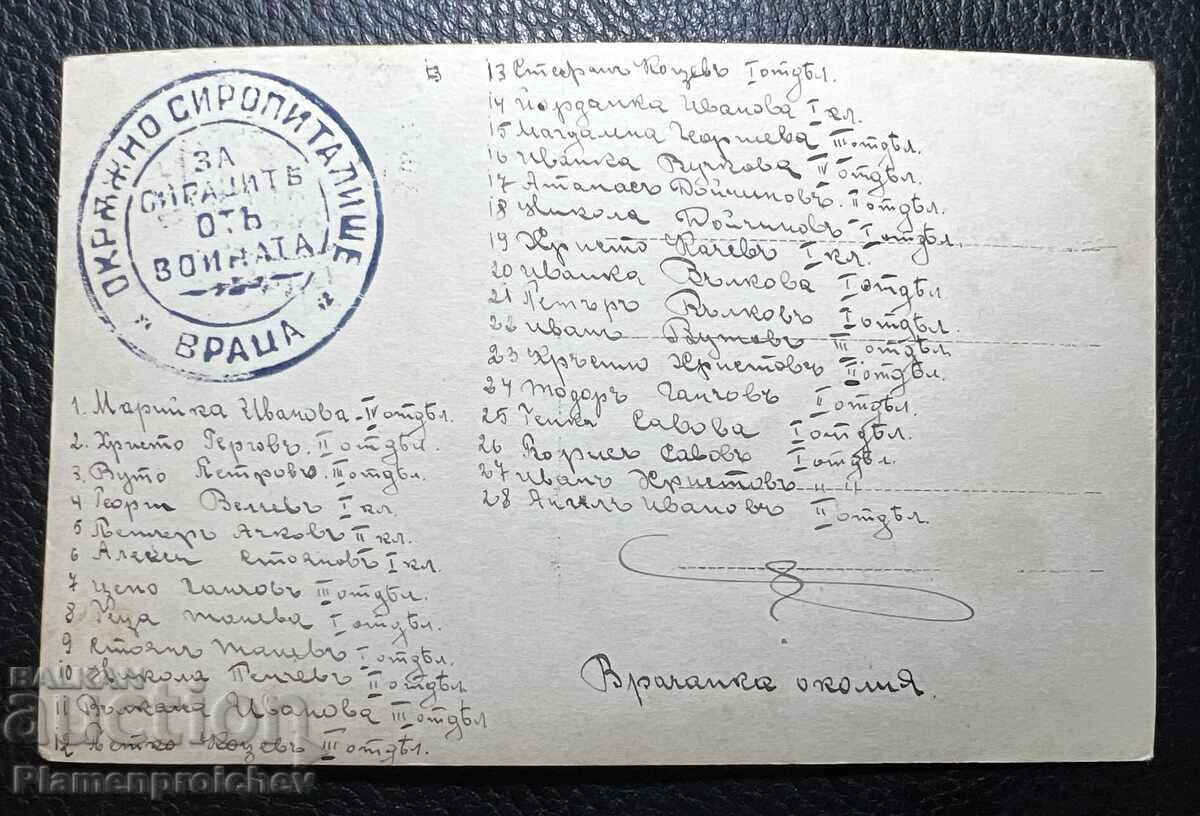 ОКРѪЖНО СИРОПИТАЛИЩЕ
ЗА
СИРАЦИТѢ
ОТЪ
ВОЙНАТА
ВРАЦА
1. Марийка Иванова - IV отдѣл.
2. Христо Герговъ. II отдѣл.
3. Вуто Петровъ. III отдѣл.
4 Георги Велчевъ I кл.
5 Петъръ Ачковъ II кл.
6 Алекси Стояновъ I кл.
7 Цено Ганчовъ III отдѣл.
8 Танева I отдѣл.
9 Стоянъ Таневъ I отдѣл.
10 Никола Пенчевъ II отдѣл.
11 Вълкана Иванова III отдѣл
12 Петко Коцевъ III отдѣл.
13 Стефанъ Коцевъ I отдѣл.
14 Йорданка Иванова I кл.
15 Магдалина Георгиева III отдѣл.
16 Иванка Вучкова IV отдѣл.
17 Атанасъ Дойчиновъ. II отдѣл.
18 Никола Дойчиновъ I отдѣл.
19 Христо Качевъ I кл.
20 Иванка Вълкова I отдѣл
21 Петъръ Вълковъ I отдѣл.
22 Иванъ Вутовъ III отдѣл
23 Кръстю Христовъ II отдѣл.
24 Тодоръ Ганчовъ II отдѣл.
25 Генка Савова I отдѣл.
26 Борисъ Савовъ I отдѣл.
27 Иванъ Христовъ " "
28 Ангелъ Ивановъ II отдѣл.
Врачанка околия.
BALKAN
auction
Plamenproichev